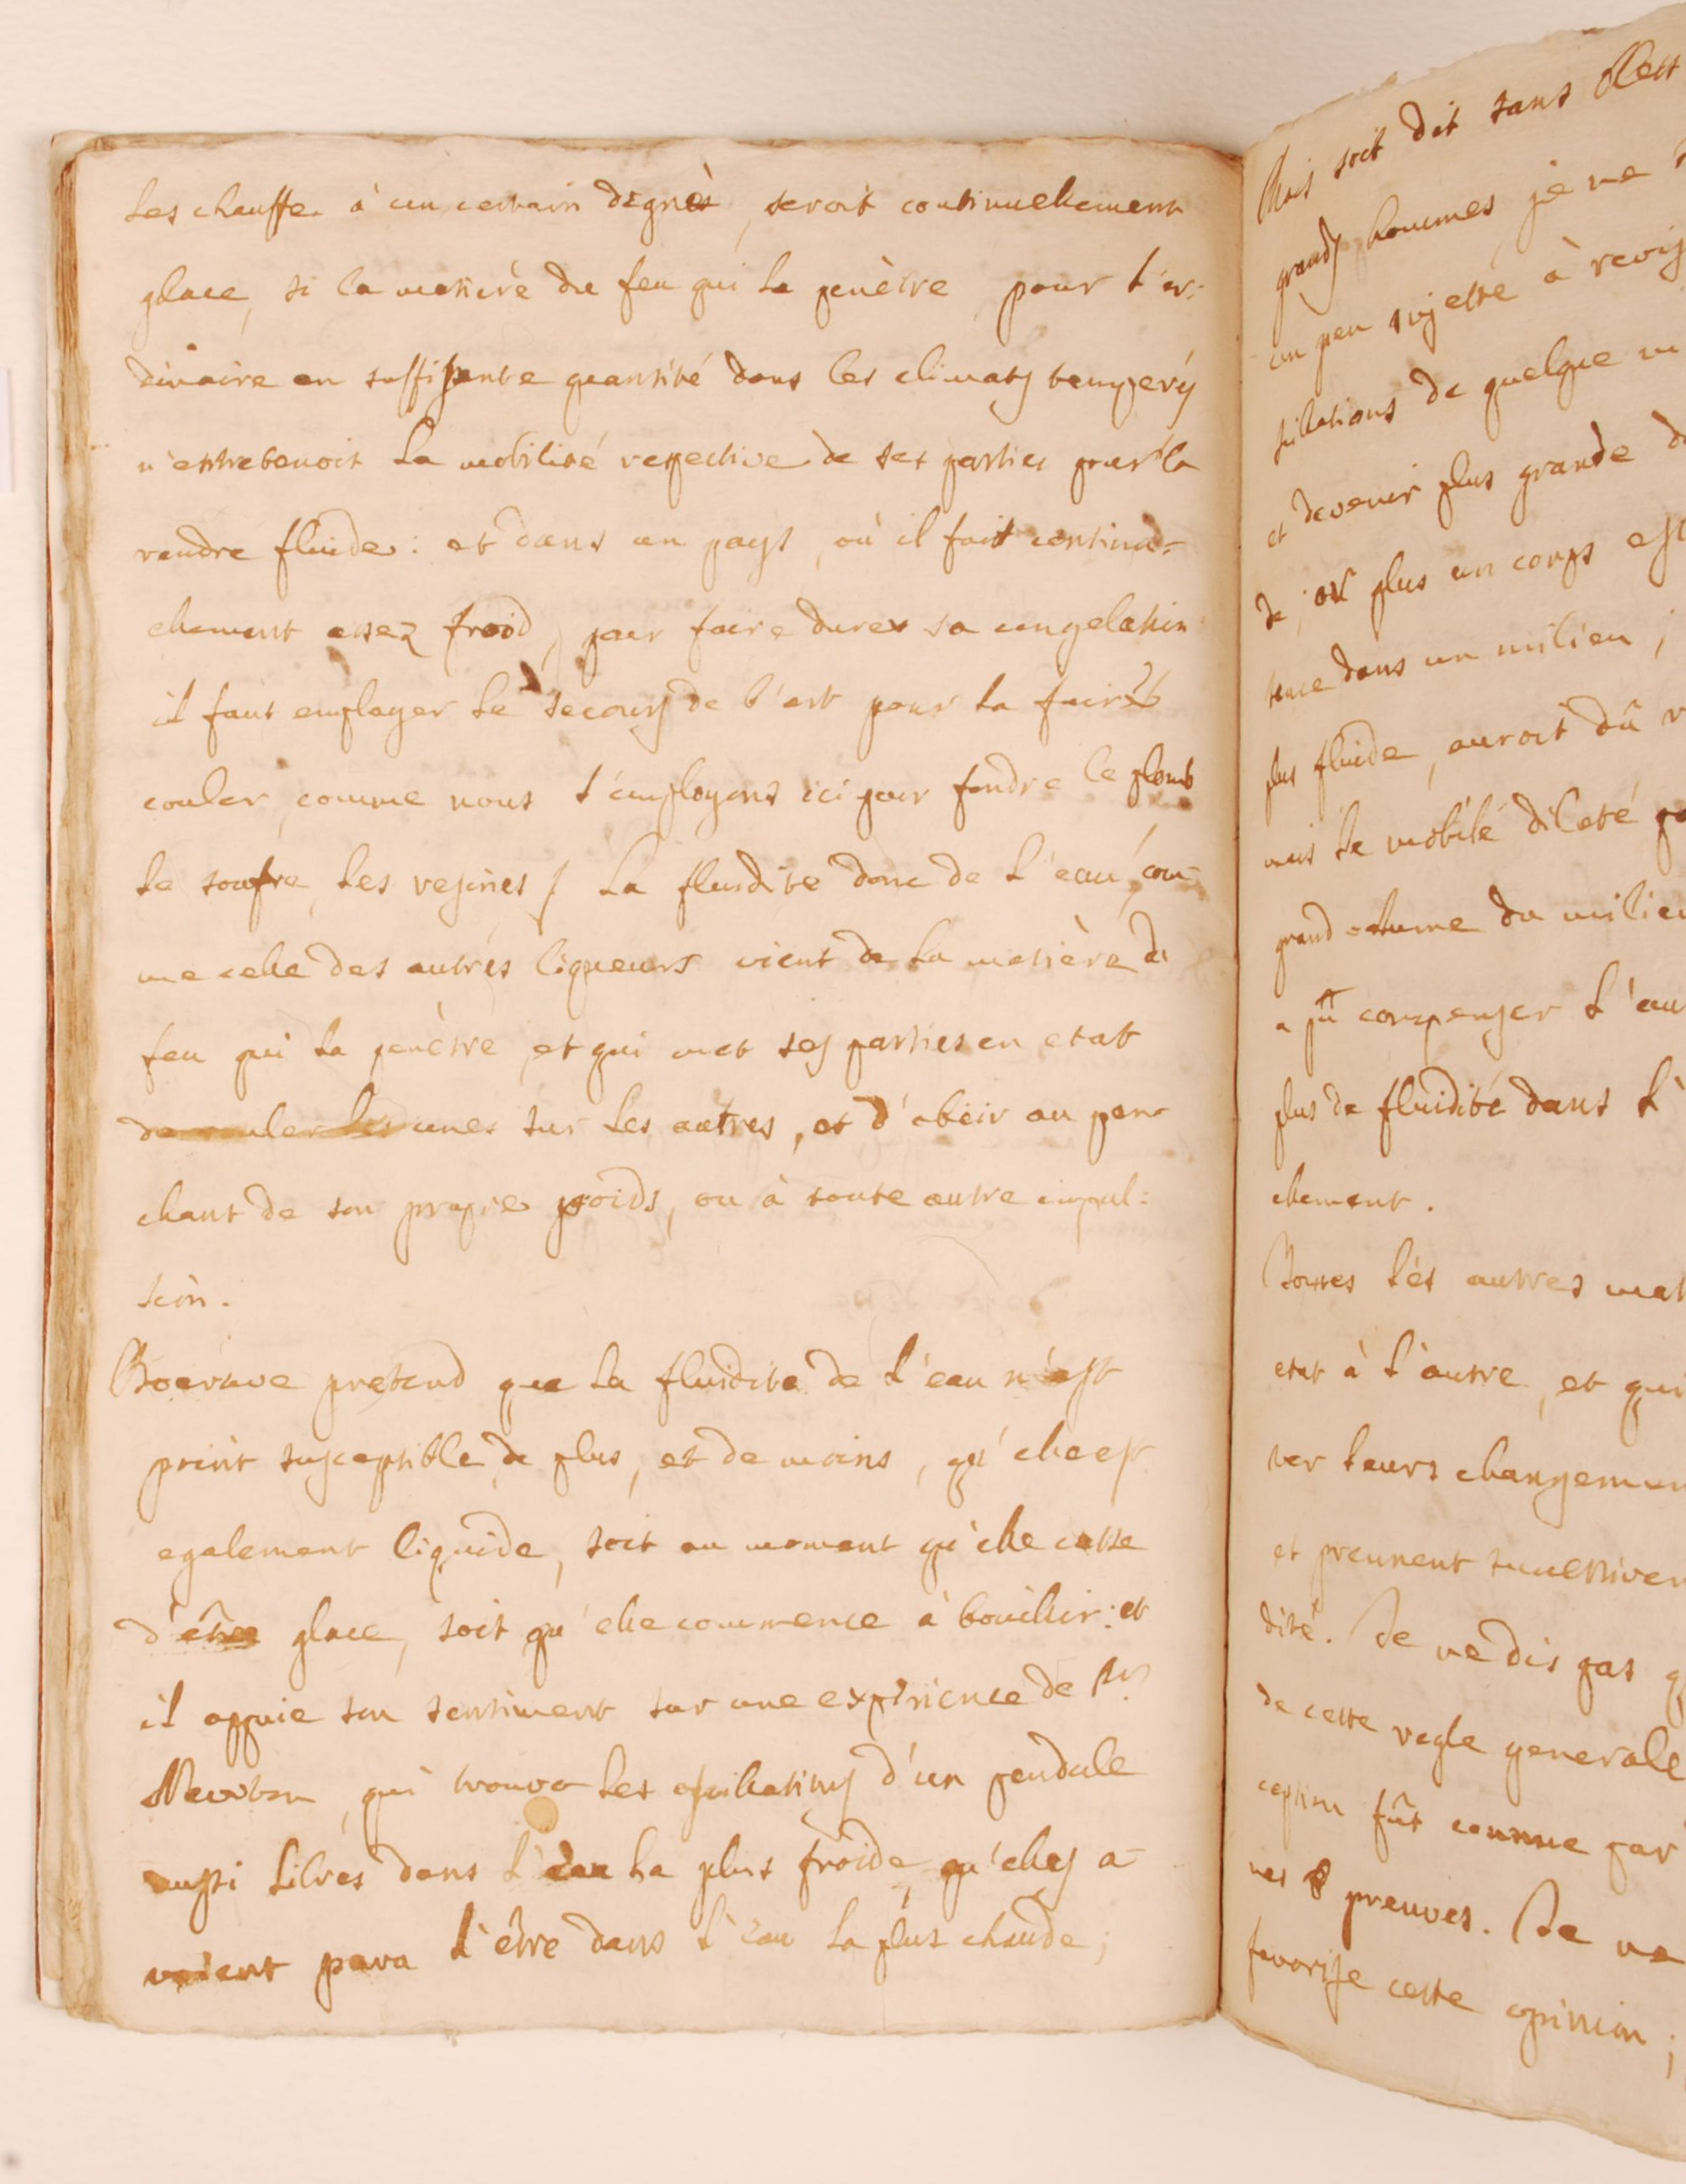 les chauffe à un certain degrès, seroit continuellement
glace, si la matiere du feu qui la penètre pour l'or:
dinaire en suffisante quantité dans les climats temperés
n'entretenoit la mobilité respective de ses parties pour la
rendre fluide: et dans un pays, où il fait continu=
ellement assez froid, pour faire durer sa congelation
il faut employer le secours de l'art pour la faire
couler, comme nous l'employons ici pour fondre le plomb
le soufre, les resines / La fluidite donc de l'eau, com-
me celle des autres liqueurs vient de la matière du
feu qui la penètre, et qui met ses parties en etat
de rouler les unes sur les autres, et d'obeir au pen-
chant de son propre poids, ou à toute autre impul:
sion.
Boerave pretend que la fluidite de l'eau n'est
point susceptible de plus, et de moins, qu'elle est
egalement liquide, soit au moment qu'elle cesse
d'être glace, soit qu'elle commence à bouillir: et
il appuie son sentiment sur une experience de Mr
Newton, qui trouva les oscillations d'un pendule
aussi libres dans l'eau la plus froide, qu'elles a-
voient paru l'être dans l'eau la plus chaude;
Mais soit dit sans
grands hommes, je ne
un peu sujetté à
de quelque
et devenir plus grande
de; or plus un corps est
dans un milieu;
plus fluide, auroit dû
mais le mobile dilaté
grand volume du milieu
a pû compenser l'
plus de fluidité dans l'
ellement.
Toutes les autres
etat à l'autre, et qui
ver leurs
et prennent
dité. Je ne dis pas
de cette regle generale
ception fût connue par
preuves. Je ne
favorise cette opinion;